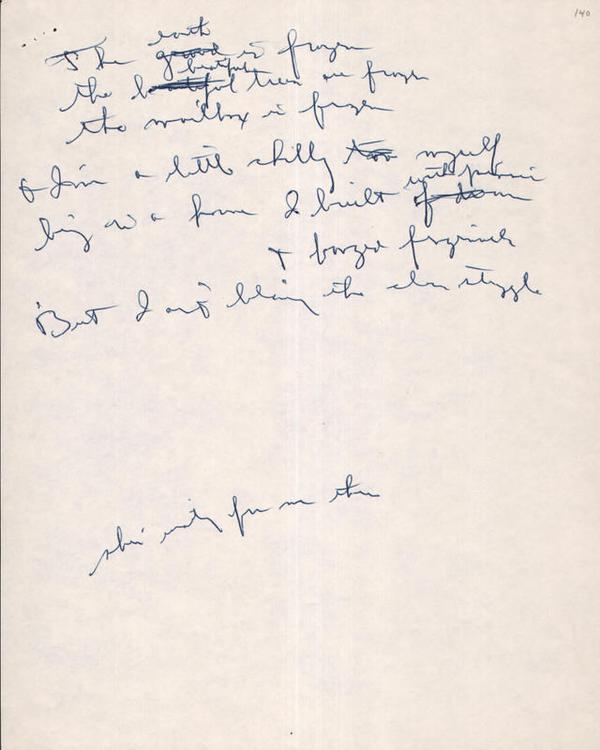 140
earth
The ground is frozen
beautiful
the beautiful trees are frozen
the mailbox is frozen
& I'm a little chilly too myself
with
living in a house I built of
& frozen
But I ain't blaming the class struggle
she's waiting for me there